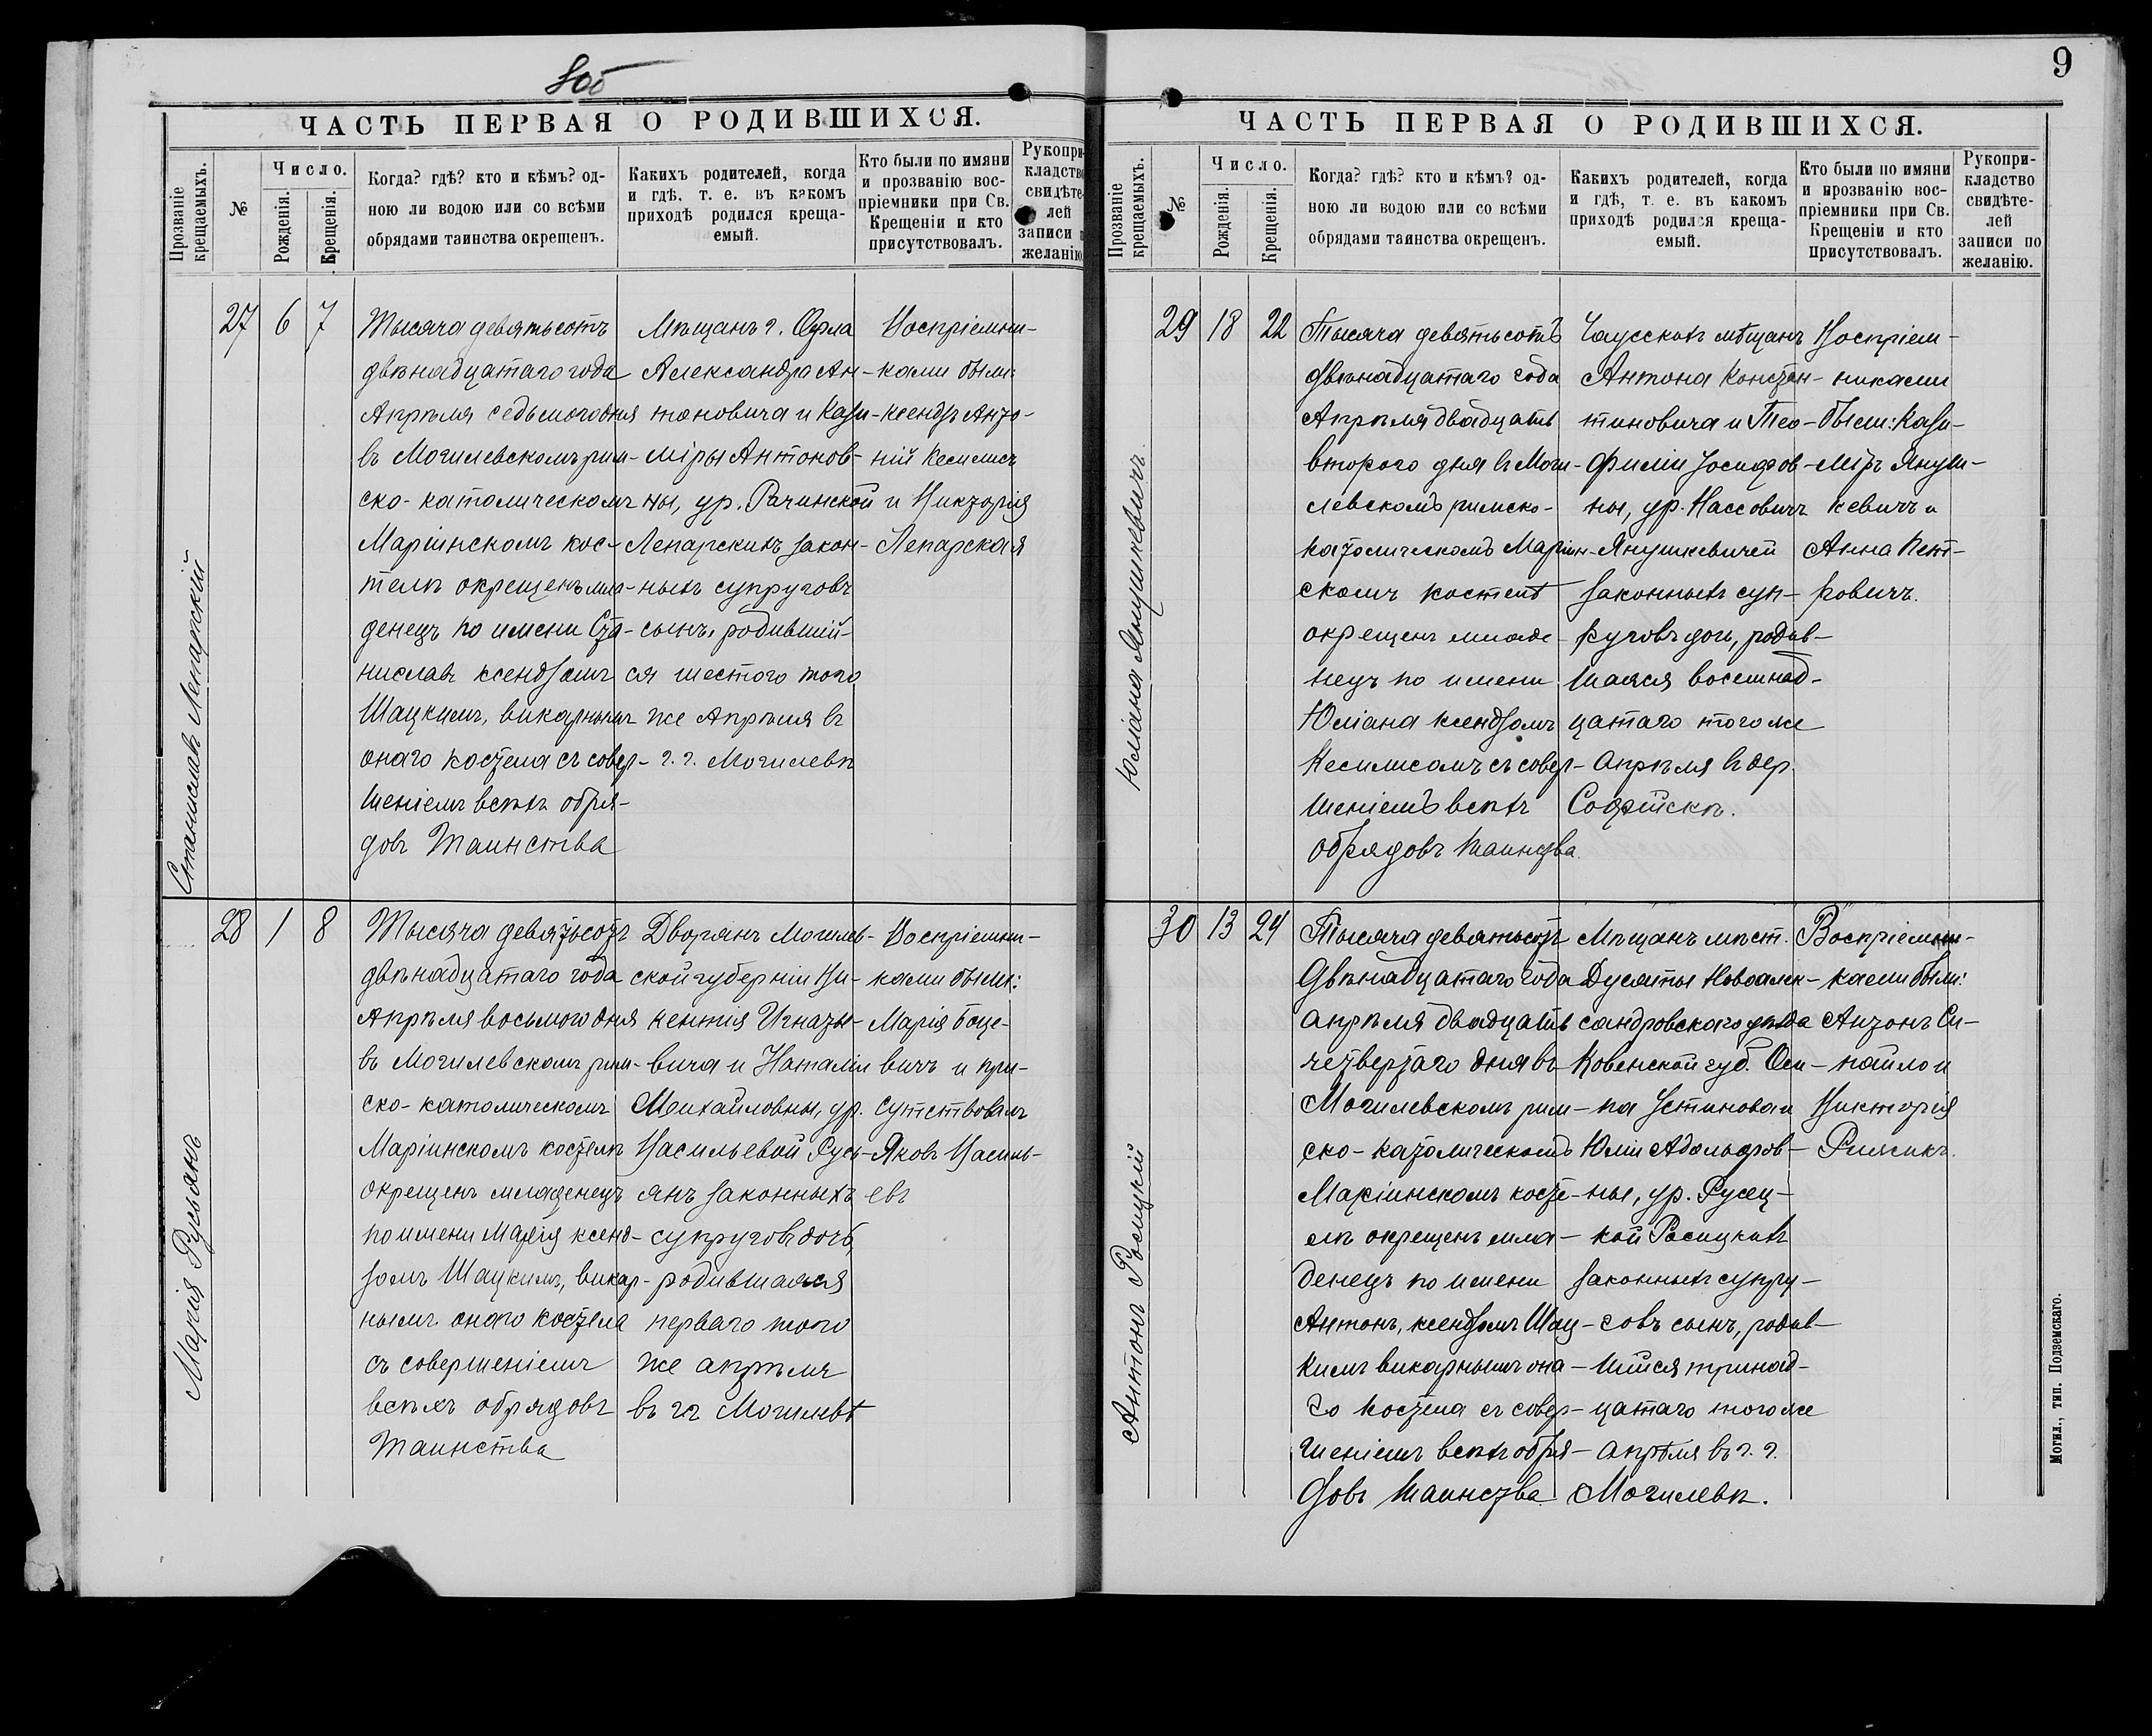 8об
ЧАСТЬ ПЕРВАЯ О РОДИВШИХСЯ.
Прозваніе крещаемыхъ.
№
Число.
Рожденія.
Крещенія.
Когда? гдѣ? кто и кѣмъ? од-
ною ли водою или со всѣми
обрядами таинства окрещенъ.
Какихъ родителей, когда
и гдѣ, т. е. въ какомъ
приходѣ родился креща-
емый.
Кто были по имяни
и прозванію вос-
пріемники при Св.
Крещеніи и кто
присутствовалъ.
Рукопри-
кладство
свидѣте-
лей
записи п
желанію.
Станиславъ Лепарскій
27
6
7
Тысяча девятьсотъ
двѣнадцатаго года
Апрѣля седьмого дня
въ Могилевскомъ рим-
ско-католическомъ
Маріинскомъ кос-
телѣ окрещенъ мла-
денецъ по имени Ста-
ниславъ ксендзомъ
Шацкимъ, викарнымъ
онаго костела съ совер-
шеніемъ всѣхъ обря-
довъ Таинства
Мѣщанъ г. Орла
Александра Ан-
тоновича и Кази-
міры Антонов-
ны, ур. Рачинской
Лепарскихъ закон-
ныхъ супруговъ
сынъ, родившій-
ся шестого того
же Апрѣля въ
г. г. Могилевѣ
Воспріемни-
ками были:
Ксендзъ Анто-
ній Кесилисъ
и Викторія
Лепарская
Марія Русьянъ
28
1
8
Тысяча девятьсотъ
двѣнадцатаго года
Апрѣля восьмого дня
въ Могилевскомъ рим-
ско-католическомъ
Маріинскомъ костелѣ
окрещенъ младенецъ
по имени Марія ксенд-
зомъ Шацкимъ, викар-
нымъ онаго костела
съ совершеніемъ
всѣхъ обрядовъ
Таинства
Дворянъ Могилев-
ской губерніи Ви-
кентія Игнатье-
вича и Наталіи
Михайловны, ур.
Васильевой Русь-
янъ законныхъ
супруговъ дочь,
родившаяся
перваго того
же апрѣля
въ гг Могилевѣ
Воспріемни-
ками были:
Марія Боце-
вичъ и при-
сутствовалъ
Яковъ Василь-
евъ
9
ЧАСТЬ ПЕРВАЯ О РОДИВШИХСЯ.
Прозваніе крещаемыхъ.
№
Число.
Рожденія.
Крещенія.
Когда? гдѣ? кто и кѣмъ? од-
ною ли водою или со всѣми
обрядами таинства окрещенъ.
Какихъ родителей, когда
и гдѣ, т. е. въ какомъ
приходѣ родился креща-
емый.
Кто были по имяни
и прозванію вос-
пріемники при Св.
Крещеніи и кто
присутствовалъ.
Рукопри-
кладство
свидѣте-
лей
записи по
желанію.
Юліана Янушкевичъ
29
18
22
Тысяча девятьсотъ
двѣнадцатаго года
Апрѣля двадцать
второго дня въ Моги-
левскомъ римско-
католическомъ Маріин-
скомъ костелѣ
окрещенъ младе-
нецъ по имени
Юліана ксендзомъ
Кесилисомъ съ совер-
шеніемъ всѣхъ
обрядовъ таинства
Чаусскихъ мѣщанъ
Антона Констан-
тиновича и Тео-
филіи Іосифов-
ны, ур. Массовичъ
Янушкевичей
законныхъ суп-
руговъ дочь, родив-
шаяся восемнад-
цатаго того же
Апрѣля въ дер.
Софійскѣ.
Воспріем-
никами
были: Кази-
міръ Януш-
кевичъ и
Анна Пет-
ровичъ.
Антонъ Росицкій
30
13
24
Тысяча девятьсотъ
двѣнадцатаго года
апрѣля двадцать
четвертаго дня въ
Могилевскомъ рим-
ско-католическомъ
Маріинскомъ косте-
лѣ окрещенъ мла-
денецъ по имени
Антонъ, ксендзомъ Шац-
кимъ викарнымъ она-
го костела съ совер-
шеніемъ всѣхъ обря-
довъ таинства
Мѣщанъ мѣст.
Дусяты Новоалек-
сандровскаго уѣзда
Ковенской губ. Оси-
па Устинова и
Юліи Адольфов-
ны, ур. Русец-
кой Росицкихъ
законныхъ супру-
говъ сынъ, родив-
шійся тринад-
цатаго того же
апрѣля въ г. г.
Могилевѣ.
Воспріемни-
ками были:
Антонъ Си-
пайло и
Викторія
Римкъ.
Могил., тип. Подземскаго.